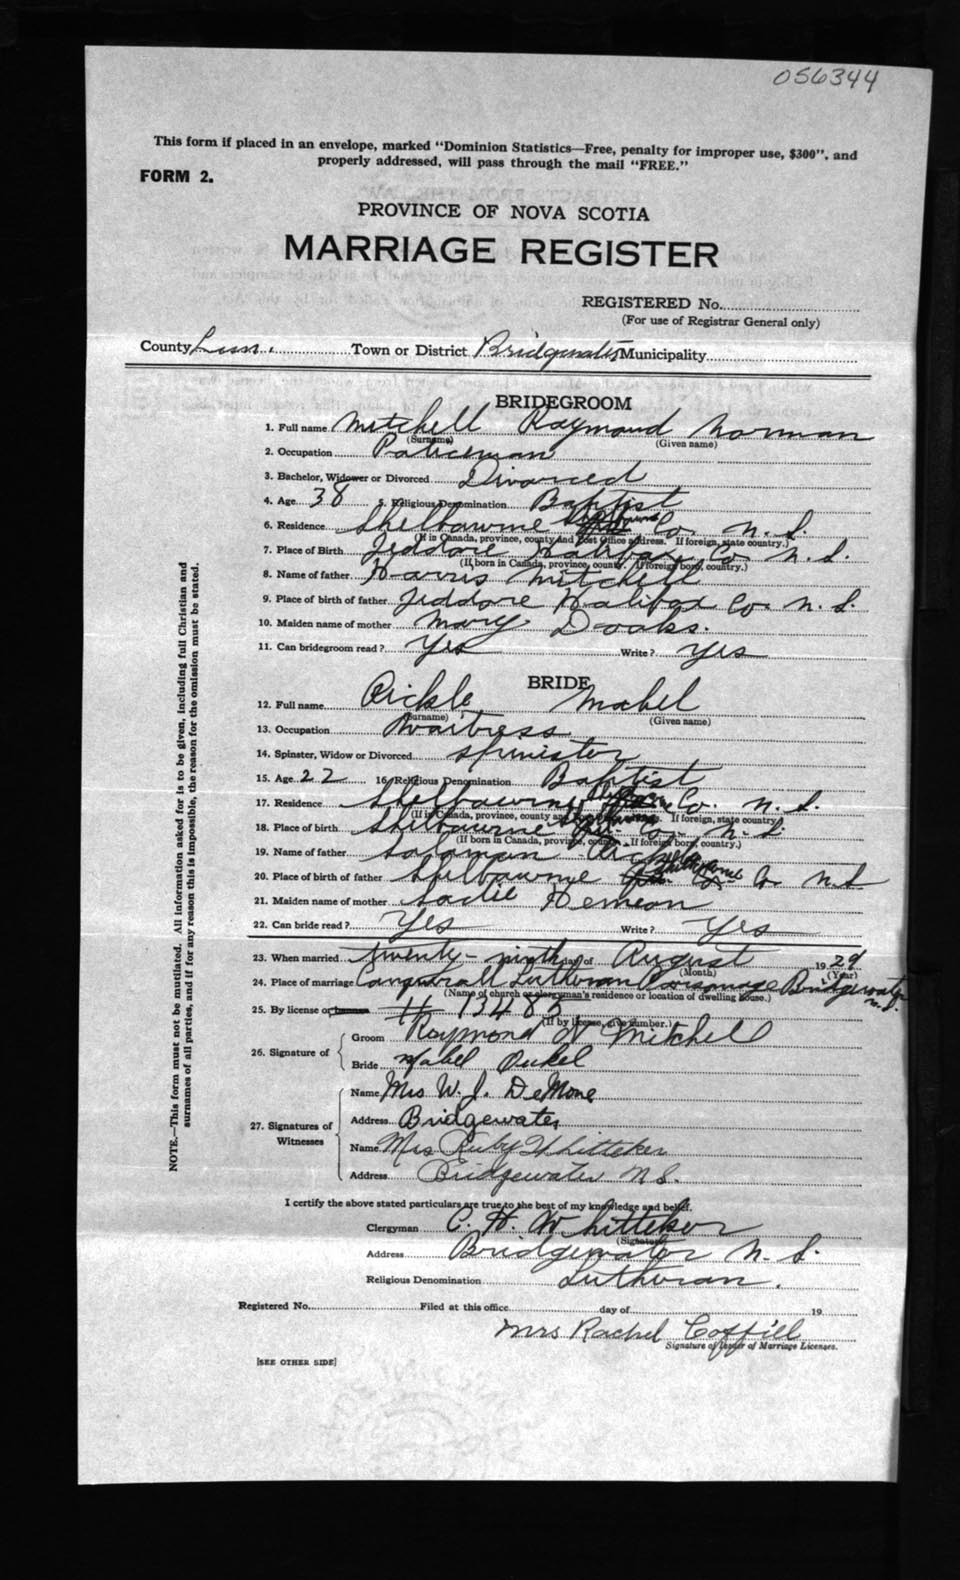 056344
This form if placed in an envelope, marked "Dominion Statistics—Free, penalty for improper use, $300", and
properly addressed, will pass through the mail "FREE."
FORM 2.
PROVINCE OF NOVA SCOTIA
MARRIAGE REGISTER
REGISTERED No.
(For use of Registrar General only)
County Lun. Town or District Bridgewater Municipality
BRIDEGROOM
1. Full name Mitchell Raymond Norman
(Surname) (Given name)
2. Occupation Policeman
3. Bachelor, Widower or Divorced Divorced
4. Age 38 5. Religious Denomination Baptist
6. Residence Shelbourne Co. N. S.
(If in Canada, province, county and Post Office address. If foreign, state country.)
7. Place of Birth Jeddore Halifax Co N. S.
(If born in Canada, province, county. If foreign born, country.)
8. Name of father Harris Mitchell
9. Place of birth of father Jeddore Halifax Co. N. S.
10. Maiden name of mother Mary Dooks.
11. Can bridegroom read? Yes Write? Yes
BRIDE
12. Full name Mabel
(Surname) (Given name)
13. Occupation Waitress
14. Spinster, Widow or Divorced Spinster
15. Age 22 16. Religious Denomination Baptist
17. Residence Shelbourne Co. N. S.
(If in Canada, province, county and Post Office address. If foreign, state country.)
18. Place of birth Shelbourne Co. N. S.
(If born in Canada, province, county. If foreign born, country.)
19. Name of father Soloman
20. Place of birth of father Shelbourne Co N. S.
21. Maiden name of mother Sadie Hemeon
22. Can bride read? Yes Write? Yes
23. When married twenty-ninth day of August 1929
(Month) (Year)
24. Place of marriage Lutheran Parsonage Bridgewater
N. S.
(Name of church or clergyman's residence or location of dwelling house.)
25. By license or banns # 13485
(If by license, give number.)
26. Signature of Groom Raymond N Mitchell
Bride Mabel
27. Signatures of Witnesses Name Mrs W. J. DeMone
Address Bridgewater
Name Mrs Ruby Whitteker
Address Bridgewater N.S.
I certify the above stated particulars are true to the best of my knowledge and belief.
Clergyman C. H. Whitteker
(Signature)
Address Bridgewater N. S.
Religious Denomination Lutheran.
Registered No. Filed at this office day of 19
Mrs Rachel Coffill
Signature of Issuer of Marriage Licenses.
[SEE OTHER SIDE]
NOTE.—This form must not be mutilated. All information asked for is to be given, including full Christian and
surnames of all parties, and if for any reason this is impossible, the reason for the omission must be stated.